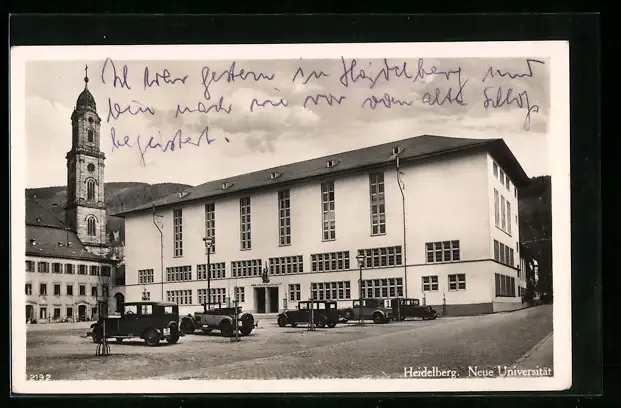 Ich war gestern in Heidelberg und
bin nach wie vor vom alten Schloß
begeistert.
2192
Heidelberg. Neue Universität